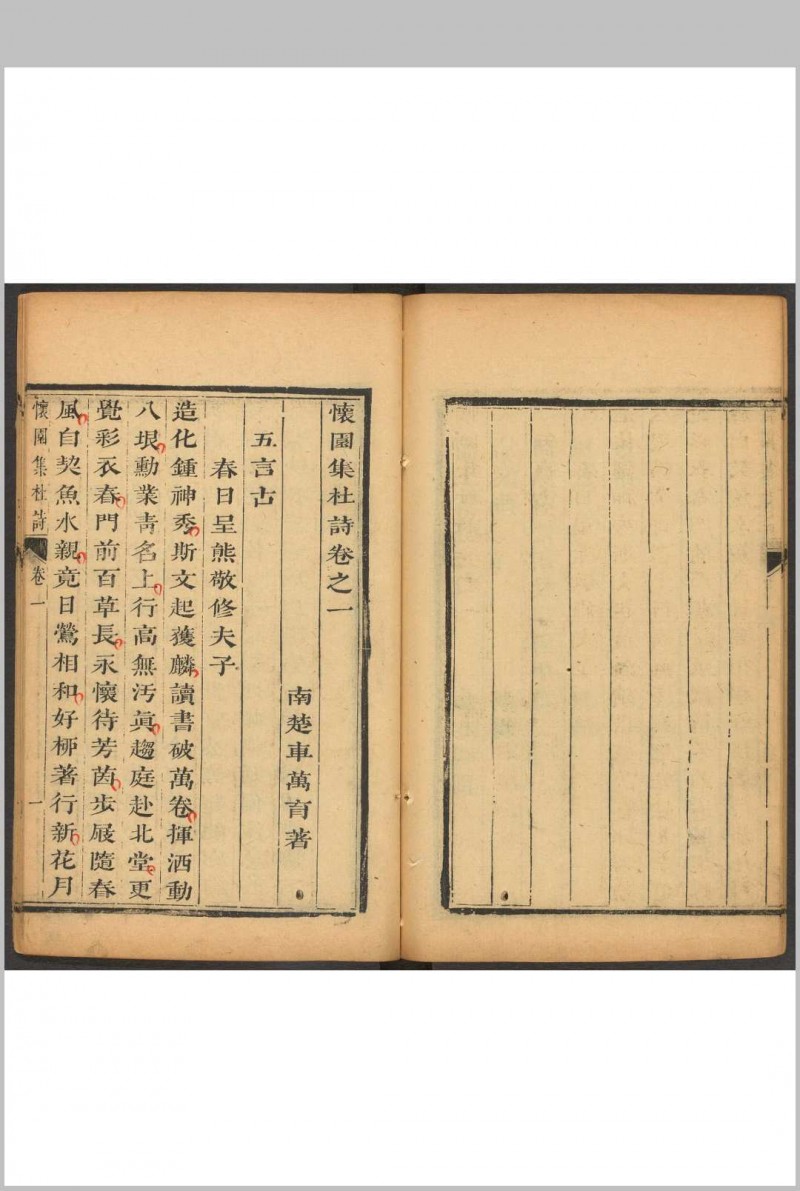 懷園集杜詩卷之一
南楚車萬育著
五言古
春日呈熊敬修夫子
造化鍾神秀斯文起獲麟讀書破萬卷揮洒動
八垠勳業青冥上行高無汚眞趨庭赴北堂更
覺彩衣春門前百草長永懷待芳茵步屧隨春
風自契魚水親竟日鶯相和好柳著行新花月
懷園集杜詩
卷一
一